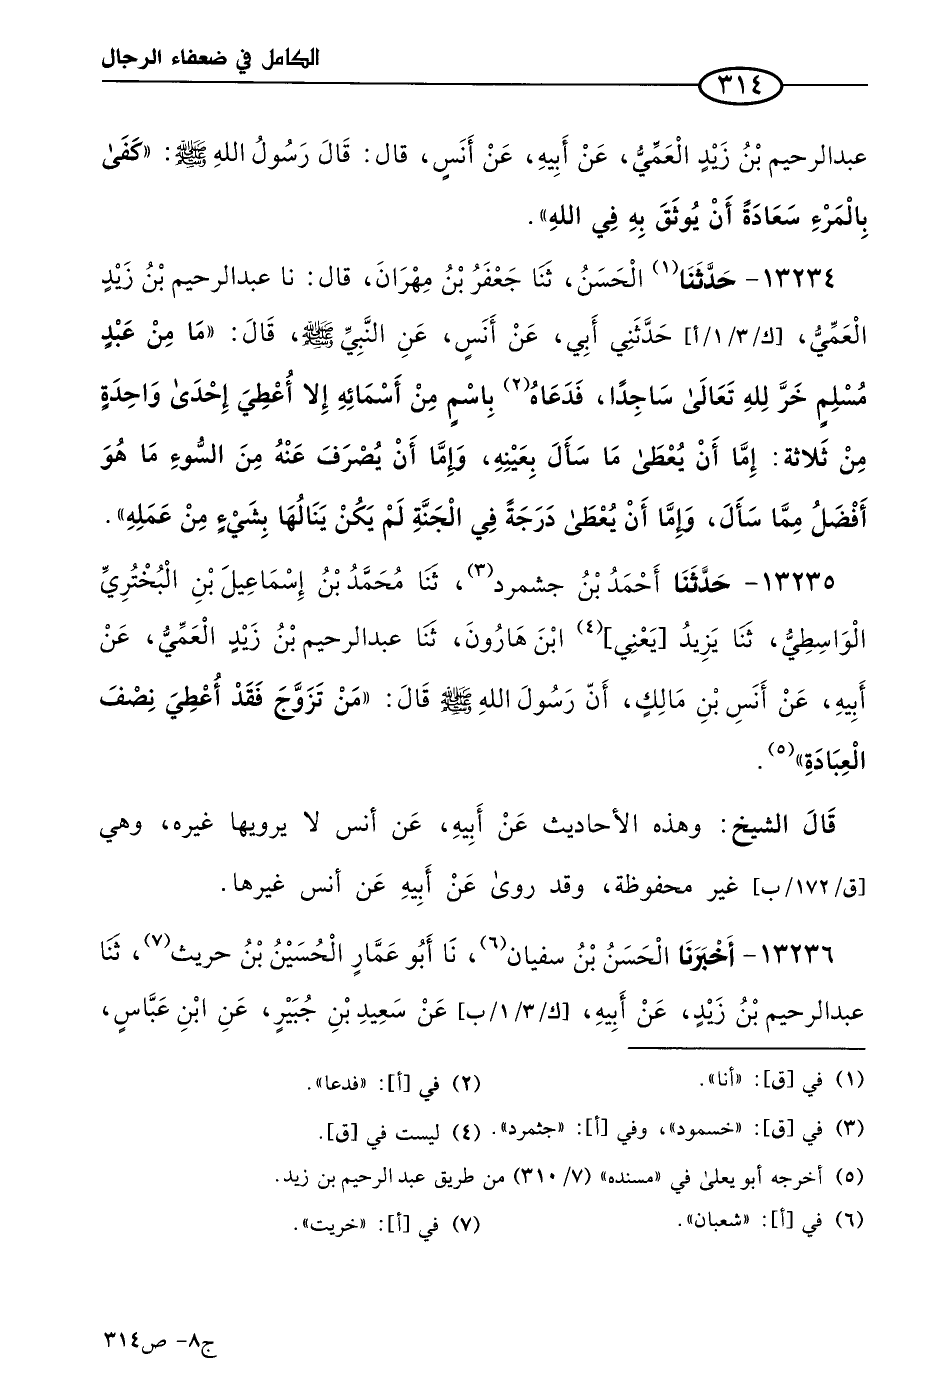 الكامل في ضعفاء الرجال
٣١٤
عبدالرحيم بْنُ زَيْدٍ الْعَمِّيُّ، عَنْ أَبِيهِ، عَنْ أَنَسٍ، قال: قَالَ رَسُولُ اللهِ ﷺ: «كَفَىٰ
بِالْمَرْءِ سَعَادَةً أَنْ يُوثَقَ بِهِ فِي اللهِ».
١٣٢٣٤- حَدَّثَنَا(١) الْحَسَنُ، ثَنَا جَعْفَرُ بْنُ مِهْرَانَ، قال: نا عبدالرحيم بْنُ زَيْدٍ
الْعَمِّيُّ، [ك/٣/١/أ] حَدَّثَنِي أَبِي، عَنْ أَنَسٍ، عَنِ النَّبِيِّ ﷺ، قَالَ: «مَا مِنْ عَبْدٍ
مُسْلِمٍ خَرَّ لِلهِ تَعَالَىٰ سَاجِدًا، فَدَعَاهُ(٢) بِاسْمٍ مِنْ أَسْمَائِهِ إِلا أُعْطِيَ إِحْدَىٰ وَاحِدَةٍ
مِنْ ثَلاثة: إِمَّا أَنْ يُعْطَىٰ مَا سَأَلَ بِعَيْنِهِ، وَإِمَّا أَنْ يُصْرَفَ عَنْهُ مِنَ السُّوءِ مَا هُوَ
أَفْضَلُ مِمَّا سَأَلَ، وَإِمَّا أَنْ يُعْطَىٰ دَرَجَةً فِي الْجَنَّةِ لَمْ يَكُنْ يَنَالُهَا بِشَيْءٍ مِنْ عَمَلِهِ».
١٣٢٣٥- حَدَّثَنَا أَحْمَدُ بْنُ جشمرد(٣)، ثَنَا مُحَمَّدُ بْنُ إِسْمَاعِيلَ بْنِ الْبُخْتُرِيِّ
الْوَاسِطِيُّ، ثَنَا يَزِيدُ [يَعْنِي](٤) ابْنَ هَارُونَ، ثَنَا عبدالرحيم بْنُ زَيْدٍ الْعَمِّيُّ، عَنْ
أَبِيهِ، عَنْ أَنَسِ بْنِ مَالِكٍ، أَنّ رَسُولَ اللهِ ﷺ قَالَ: «مَنْ تَزَوَّجَ فَقَدْ أُعْطِيَ نِصْفَ
الْعِبَادَةِ»(٥).
قَالَ الشيخ: وهذه الأحاديث عَنْ أَبِيهِ، عَن أنس لا يرويها غيره، وهي
[ق/١٧٢/ب] غير محفوظة، وقد روىٰ عَنْ أَبِيهِ عَن أنس غيرها.
١٣٢٣٦- أَخْبَرَنَا الْحَسَنُ بْنُ سفيان(٦)، نَا أَبُو عَمَّارٍ الْحُسَيْنُ بْنُ حريث(٧)، ثَنَا
عبدالرحيم بْنُ زَيْدٍ، عَنْ أَبِيهِ، [ك/٣/١/ب] عَنْ سَعِيدِ بْنِ جُبَيْرٍ، عَنِ ابْنِ عَبَّاسٍ،
(١) في [ق]: «أنا». (٢) في [أ]: «فدعا».
(٣) في [ق]: «خسمود»، وفي [أ]: «جثمرد». (٤) ليست في [ق].
(٥) أخرجه أبو يعلىٰ في «مسنده» (٧/ ٣١٠) من طريق عبد الرحيم بن زيد.
(٦) في [أ]: «شعبان». (٧) في [أ]: «خريت».
ج٨- ص٣١٤